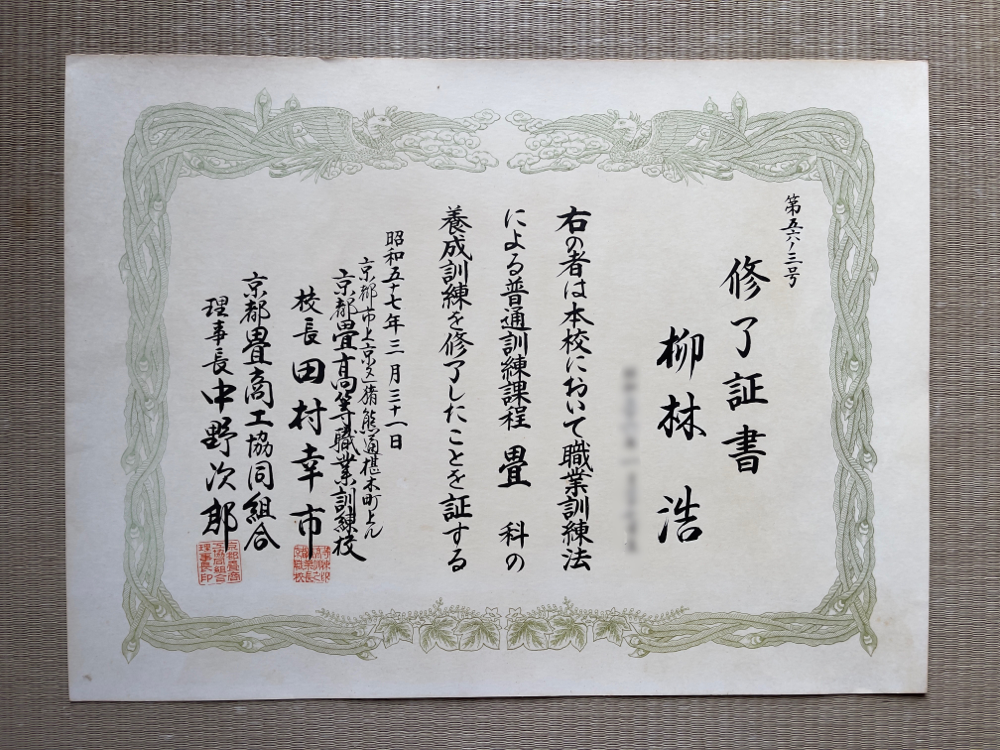 第五六ノ三号
修了証書
柳林浩
右の者は本校において職業訓練法
による普通訓練課程畳科の
養成訓練を修了したことを証する
昭和五十七年三月三十一日
京都市上京区猪熊通椹木町上ル
京都畳高等職業訓練校
校長田村幸市
京都畳商工協同組合
理事長中野次郎
京都畳商
工協同組合
理事長印